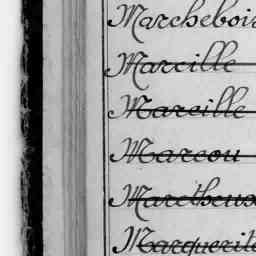 Marchebois
Marcille
Marcille
Marcou
Marcthoux
Marguerit